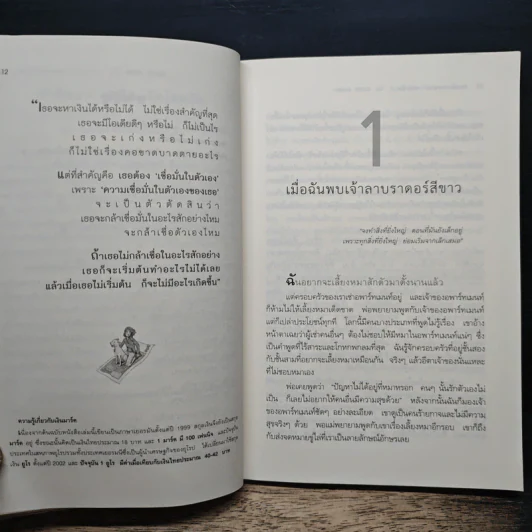 12
"เธอจะหาเงินได้หรือไม่ได้ ไม่ใช่เรื่องสำคัญที่สุด
เธอจะมีไอเดียดีๆ หรือไม่ ก็ไม่เป็นไร
เธอจะเก่งหรือไม่เก่ง
ก็ไม่ใช่เรื่องคอขาดบาดตายอะไร
แต่ที่สำคัญคือ เธอต้อง 'เชื่อมั่นในตัวเอง'
เพราะ 'ความเชื่อมั่นในตัวเองของเธอ'
จะเป็นตัวตัดสินว่า
เธอจะกล้าเชื่อมั่นในอะไรสักอย่างไหม
จะกล้าเชื่อตัวเองไหม
ถ้าเธอไม่กล้าเชื่อในอะไรสักอย่าง
เธอก็จะเริ่มต้นทำอะไรไม่ได้เลย
แล้วเมื่อเธอไม่เริ่มต้น ก็จะไม่มีอะไรเกิดขึ้น"
ความรู้เกี่ยวกับเงินมาร์ค
1
เมื่อฉันพบเจ้าลาบราดอร์สีขาว
"จงทำสิ่งที่ยิ่งใหญ่ ตอนที่มันยังเล็กอยู่
เพราะทุกสิ่งที่ยิ่งใหญ่ ย่อมเริ่มจากเล็กเสมอ"
ฉันอยากจะเลี้ยงหมาสักตัวมาตั้งนานแล้ว
แต่ครอบครัวของเราเช่าอพาร์ทเมนท์อยู่ และเจ้าของอพาร์ทเมนท์
ก็ห้ามไม่ให้เลี้ยงหมาเด็ดขาด พ่อพยายามพูดกับเจ้าของอพาร์ทเมนท์
แต่ก็เปล่าประโยชน์ทุกที โลกนี้มีคนบางประเภทที่พูดไม่รู้เรื่อง เขาอ้าง
หน้าตาเฉยว่าผู้เช่าคนอื่นๆ ต้องไม่ชอบให้มีหมาในอพาร์ทเมนท์แน่ๆ ซึ่ง
เป็นคำพูดที่ไร้สาระและโกหกพกลมที่สุด ฉันรู้จักครอบครัวที่อยู่ชั้นสอง
กับชั้นสามที่อยากจะเลี้ยงหมาเหมือนกัน จริงๆ แล้วอีตาเจ้าของนั่นแหละ
ที่ไม่ชอบหมาเอง
พ่อเคยพูดว่า "ปัญหาไม่ได้อยู่ที่หมาหรอก คนๆ นั้นรักตัวเองไม่
เป็น ก็เลยไม่อยากให้คนอื่นมีความสุขด้วย" หลังจากนั้นฉันก็มองเจ้า
ของอพาร์ทเมนท์ชัดๆ อย่างละเอียด เขาดูเป็นคนร้ายกาจและไม่มีความ
สุขจริงๆ ด้วย พ่อแม่พยายามพูดกับเขาเรื่องเลี้ยงหมาอีกรอบ เขาก็ถึง
กับส่งจดหมายขู่ไล่ที่เราเป็นลายลักษณ์อักษรเลย